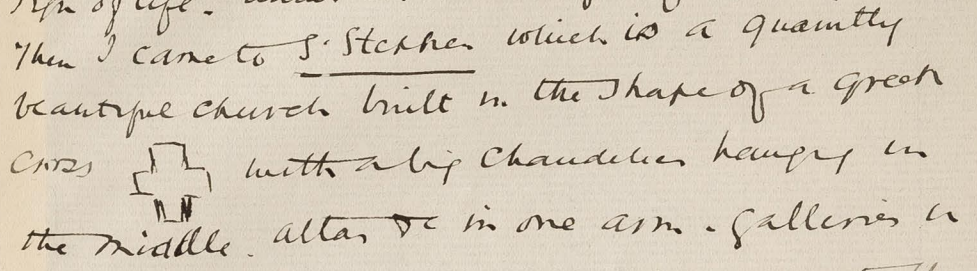 sign of life. under
Then I came to S. Stephen which is a quaintly
beautiful church built in the shape of a Greek
Cross with a big Chandelier hanging in
the middle. altar &c in one arm. galleries in